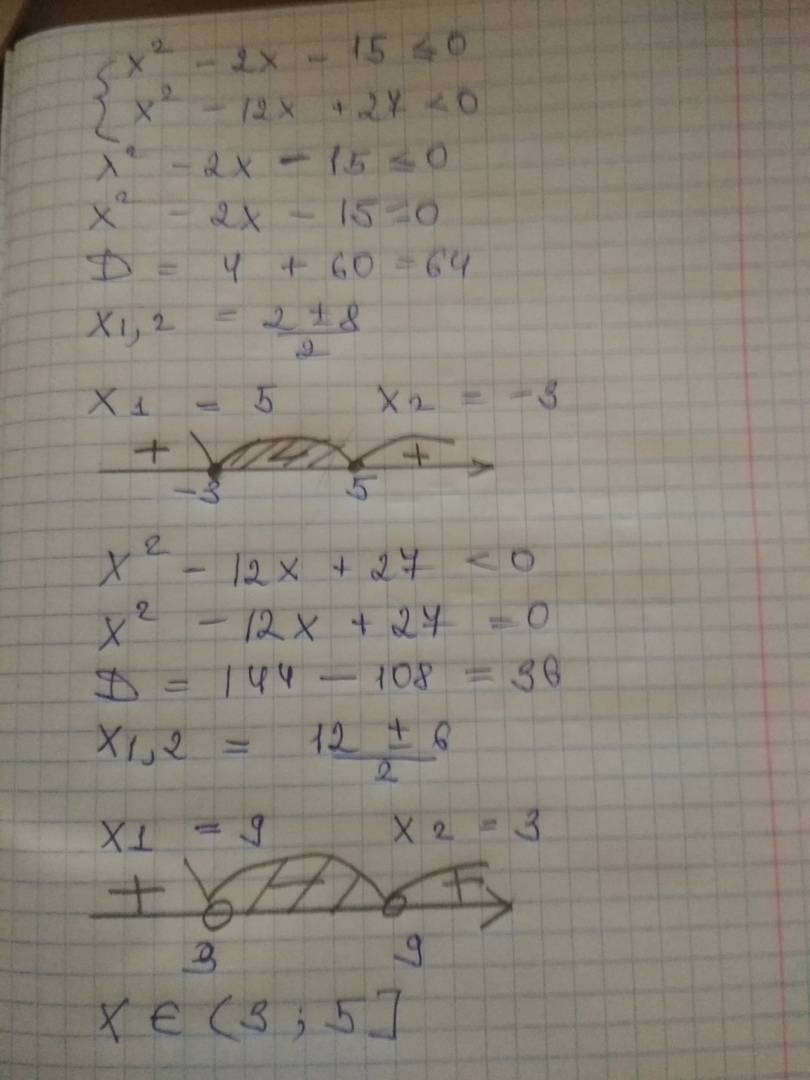 { x² - 2x - 15 ≤ 0
{ x² - 12x + 27 < 0
x² - 2x - 15 ≤ 0
x² - 2x - 15 = 0
D = 4 + 60 = 64
x1,2 = (2 ± 8)/2
x1 = 5 x2 = -3
+ - +
-3 5
x² - 12x + 27 < 0
x² - 12x + 27 = 0
D = 144 - 108 = 36
x1,2 = (12 ± 6)/2
x1 = 9 x2 = 3
+ - +
3 9
x ∈ (3 ; 5]